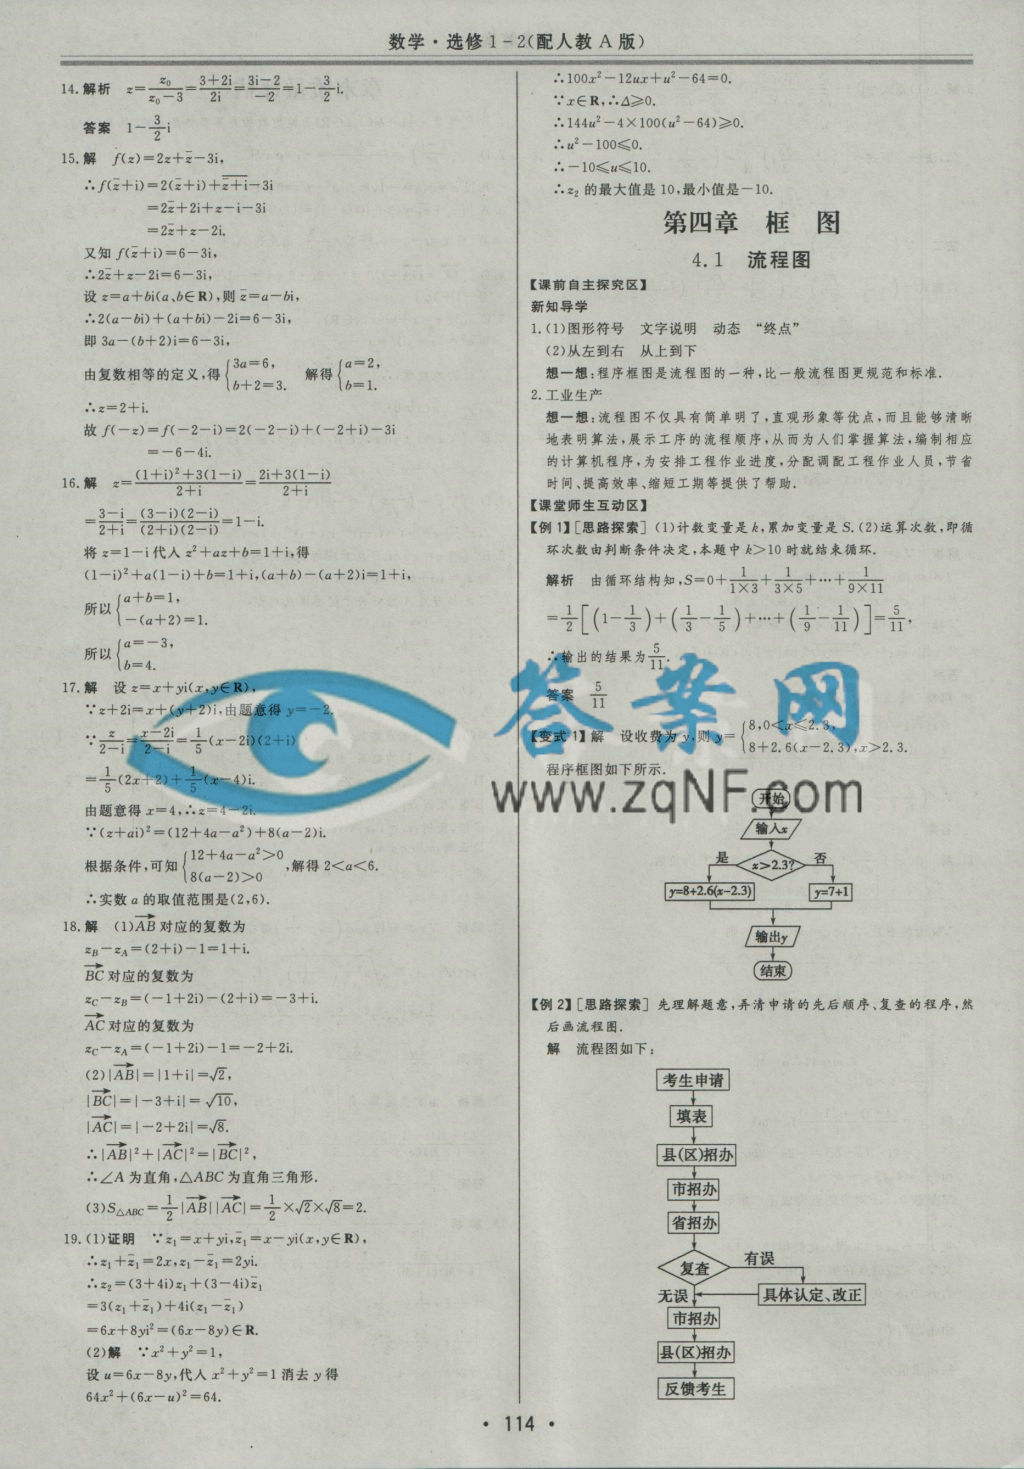 数学·选修1-2(配人教A版)
14.解析 z=z₀/(z₀-3)=(3+2i)/2i=(3i-2)/-2=1-3/2i.
答案 1-3/2i
15.解 f(z)=2z+z̄-3i,
∴f(z̄+i)=2(z̄+i)+\overline{z̄+i}-3i
=2z̄+2i+z-i-3i
=2z̄+z-2i.
又知f(z̄+i)=6-3i,
∴2z̄+z-2i=6-3i,
设z=a+bi(a、b∈R),则z̄=a-bi,
∴2(a-bi)+(a+bi)-2i=6-3i,
即3a-(b+2)i=6-3i,
由复数相等的定义,得{3a=6, b+2=3. 解得{a=2, b=1.
∴z=2+i.
故f(-z)=f(-2-i)=2(-2-i)+(-2+i)-3i
=-6-4i.
16.解 z=((1+i)²+3(1-i))/(2+i)=(2i+3(1-i))/(2+i)
=(3-i)/(2+i)=((3-i)(2-i))/((2+i)(2-i))=1-i.
将z=1-i代入z²+az+b=1+i,得
(1-i)²+a(1-i)+b=1+i,(a+b)-(a+2)i=1+i,
所以{a+b=1, -(a+2)=1.
所以{a=-3, b=4.
17.解 设z=x+yi(x,y∈R),
∵z+2i=x+(y+2)i,由题意得y=-2.
∵z/(2-i)=(x-2i)/(2-i)=1/5(x-2i)(2+i)
=1/5(2x+2)+1/5(x-4)i.
由题意得x=4,∴z=4-2i.
∵(z+ai)²=(12+4a-a²)+8(a-2)i.
根据条件,可知{12+4a-a²>0 8(a-2)>0,解得2<a<6.
∴实数a的取值范围是(2,6).
18.解 (1)AB→对应的复数为
z_B-z_A=(2+i)-1=1+i.
BC→对应的复数为
z_C-z_B=(-1+2i)-(2+i)=-3+i.
AC→对应的复数为
z_C-z_A=(-1+2i)-1=-2+2i.
(2)|AB→|=|1+i|=√2,
|BC→|=|-3+i|=√10,
|AC→|=|-2+2i|=√8.
∴|AB→|²+|AC→|²=|BC→|²,
∴∠A为直角,△ABC为直角三角形.
(3)S△ABC=1/2|AB→||AC→|=1/2×√2×√8=2.
19.(1)证明 ∵z₁=x+yi,z̄₁=x-yi(x,y∈R),
∴z₁+z̄₁=2x,z₁-z̄₁=2yi.
∴z₂=(3+4i)z₁+(3-4i)z̄₁
=3(z₁+z̄₁)+4i(z₁-z̄₁)
=6x+8yi²=(6x-8y)∈R.
(2)解 ∵x²+y²=1,
设u=6x-8y,代入x²+y²=1消去y得
64x²+(6x-u)²=64.
∴100x²-12ux+u²-64=0.
∵x∈R,∴Δ⩾0.
∴144u²-4×100(u²-64)⩾0.
∴u²-100⩽0.
∴-10⩽u⩽10.
∴z₂的最大值是10,最小值是-10.
第四章 框 图
4.1 流程图
【课前自主探究区】
新知导学
1.(1)图形符号 文字说明 动态 “终点”
(2)从左到右 从上到下
想一想:程序框图是流程图的一种,比一般流程图更规范和标准.
2.工业生产
想一想:流程图不仅具有简单明了,直观形象等优点,而且能够清晰
地表明算法,展示工序的流程顺序,从而为人们掌握算法,编制相应
的计算机程序,为安排工程作业进度,分配调配工程作业人员,节省
时间、提高效率、缩短工期等提供了帮助.
【课堂师生互动区】
【例1】[思路探索] (1)计数变量是k,累加变量是S.(2)运算次数,即循
环次数由判断条件决定,本题中k>10时就结束循环.
解析 由循环结构知,S=0+1/(1×3)+1/(3×5)+…+1/(9×11)
=1/2[(1-1/3)+(1/3-1/5)+…+(1/9-1/11)]=5/11,
∴输出的结果为5/11.
答案 5/11
【变式1】解 设收费为y,则y={8,0<x⩽2.3, 8+2.6(x-2.3),x>2.3.
程序框图如下所示.
开始
输入x
是 x>2.3? 否
y=8+2.6(x-2.3) y=7+1
输出y
结束
【例2】[思路探索] 先理解题意,弄清申请的先后顺序、复查的程序,然
后画流程图.
解 流程图如下:
考生申请
填表
县(区)招办
市招办
省招办
复查 有误
无误 具体认定、改正
市招办
县(区)招办
反馈考生
答案网
www.zqNF.com
· 114 ·